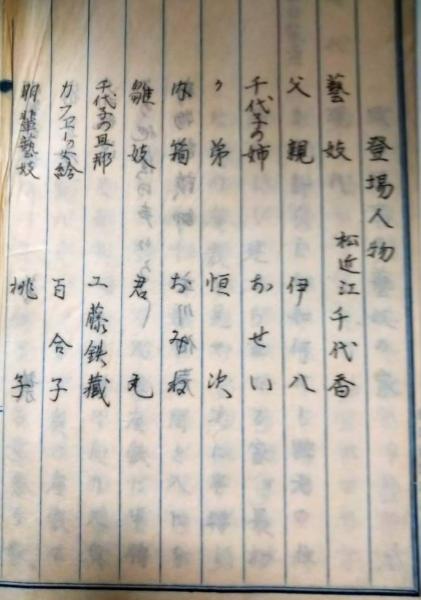 登場人物
藝妓 松近江千代香
父親 伊八
千代子の姉 おせい
〃弟 恒次
内箱 おみね
雛妓 君丸
千代子の旦那 工藤鉄藏
カフヱーの女給 百合子
朋輩藝妓 桃